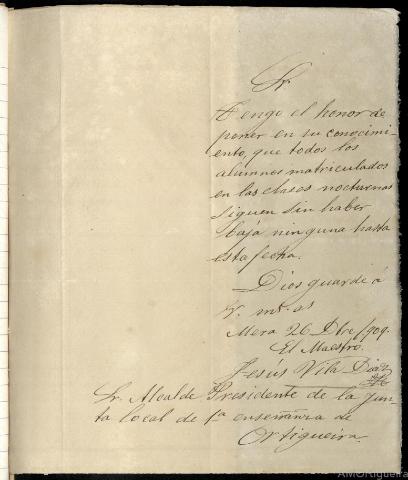 Sr.
Tengo el honor de
poner en su conocimi-
ento, que todos los
alumnos matriculados
en las clases nocturnas
siguen sin haber
baja ninguna hasta
esta fecha.
Dios guarde á
V. ms. as
Mera 26 Dbre/909.
El Maestro.
Jesús Vila Diaz
Sr. Alcalde Presidente de la Jun-
ta local de 1ª enseñanza de
Ortigueira
AMOrtigueira